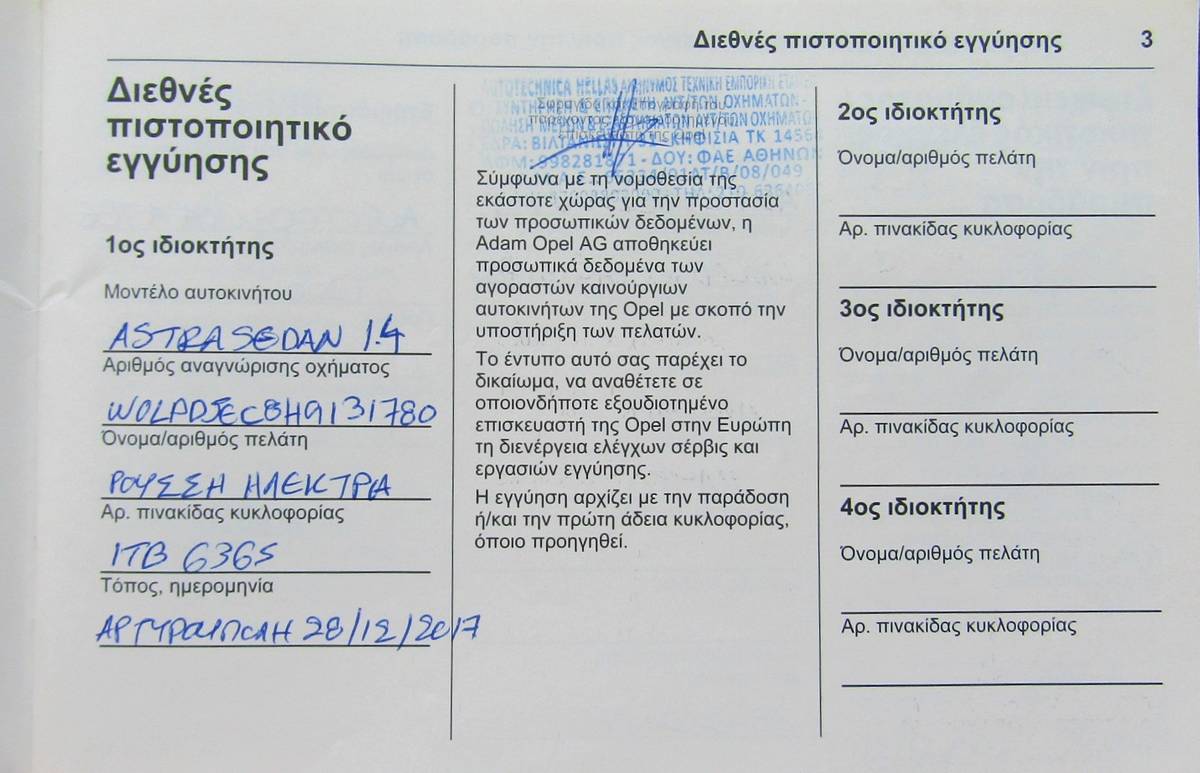 Διεθνές πιστοποιητικό εγγύησης 3
Διεθνές
πιστοποιητικό
εγγύησης
1ος ιδιοκτήτης
Μοντέλο αυτοκινήτου
ASTRA SEDAN 1.4
Αριθμός αναγνώρισης οχήματος
WOLPD5EC8H9131780
Όνομα/αριθμός πελάτη
ΡΟΥΣΣΗ ΗΛΕΚΤΡΑ
Αρ. πινακίδας κυκλοφορίας
ΙΤΒ 6365
Τόπος, ημερομηνία
ΑΡΓΥΡΟΥΠΟΛΗ 28/12/2017
AUTOTECHNICA HELLAS ΤΕΧΝΙΚΗ ΕΜΠΟΡΙΚΗ
ΑΥΤ/ΤΩΝ ΟΧΗΜΑΤΩΝ-
ΑΥΤ/ΤΩΝ ΟΧΗΜΑΤΩΝ
ΕΔΡΑ: 31 - ΚΗΦΙΣΙΑ ΤΚ 14564
ΑΦΜ: 998281871 - ΔΟΥ: ΦΑΕ ΑΘΗΝΩΝ
Σύμφωνα με τη νομοθεσία της
εκάστοτε χώρας για την προστασία
των προσωπικών δεδομένων, η
Adam Opel AG αποθηκεύει
προσωπικά δεδομένα των
αγοραστών καινούργιων
αυτοκινήτων της Opel με σκοπό την
υποστήριξη των πελατών.
Το έντυπο αυτό σας παρέχει το
δικαίωμα, να αναθέτετε σε
οποιονδήποτε εξουδιοτημένο
επισκευαστή της Opel στην Ευρώπη
τη διενέργεια ελέγχων σέρβις και
εργασιών εγγύησης.
Η εγγύηση αρχίζει με την παράδοση
ή/και την πρώτη άδεια κυκλοφορίας,
όποιο προηγηθεί.
2ος ιδιοκτήτης
Όνομα/αριθμός πελάτη
Αρ. πινακίδας κυκλοφορίας
3ος ιδιοκτήτης
Όνομα/αριθμός πελάτη
Αρ. πινακίδας κυκλοφορίας
4ος ιδιοκτήτης
Όνομα/αριθμός πελάτη
Αρ. πινακίδας κυκλοφορίας